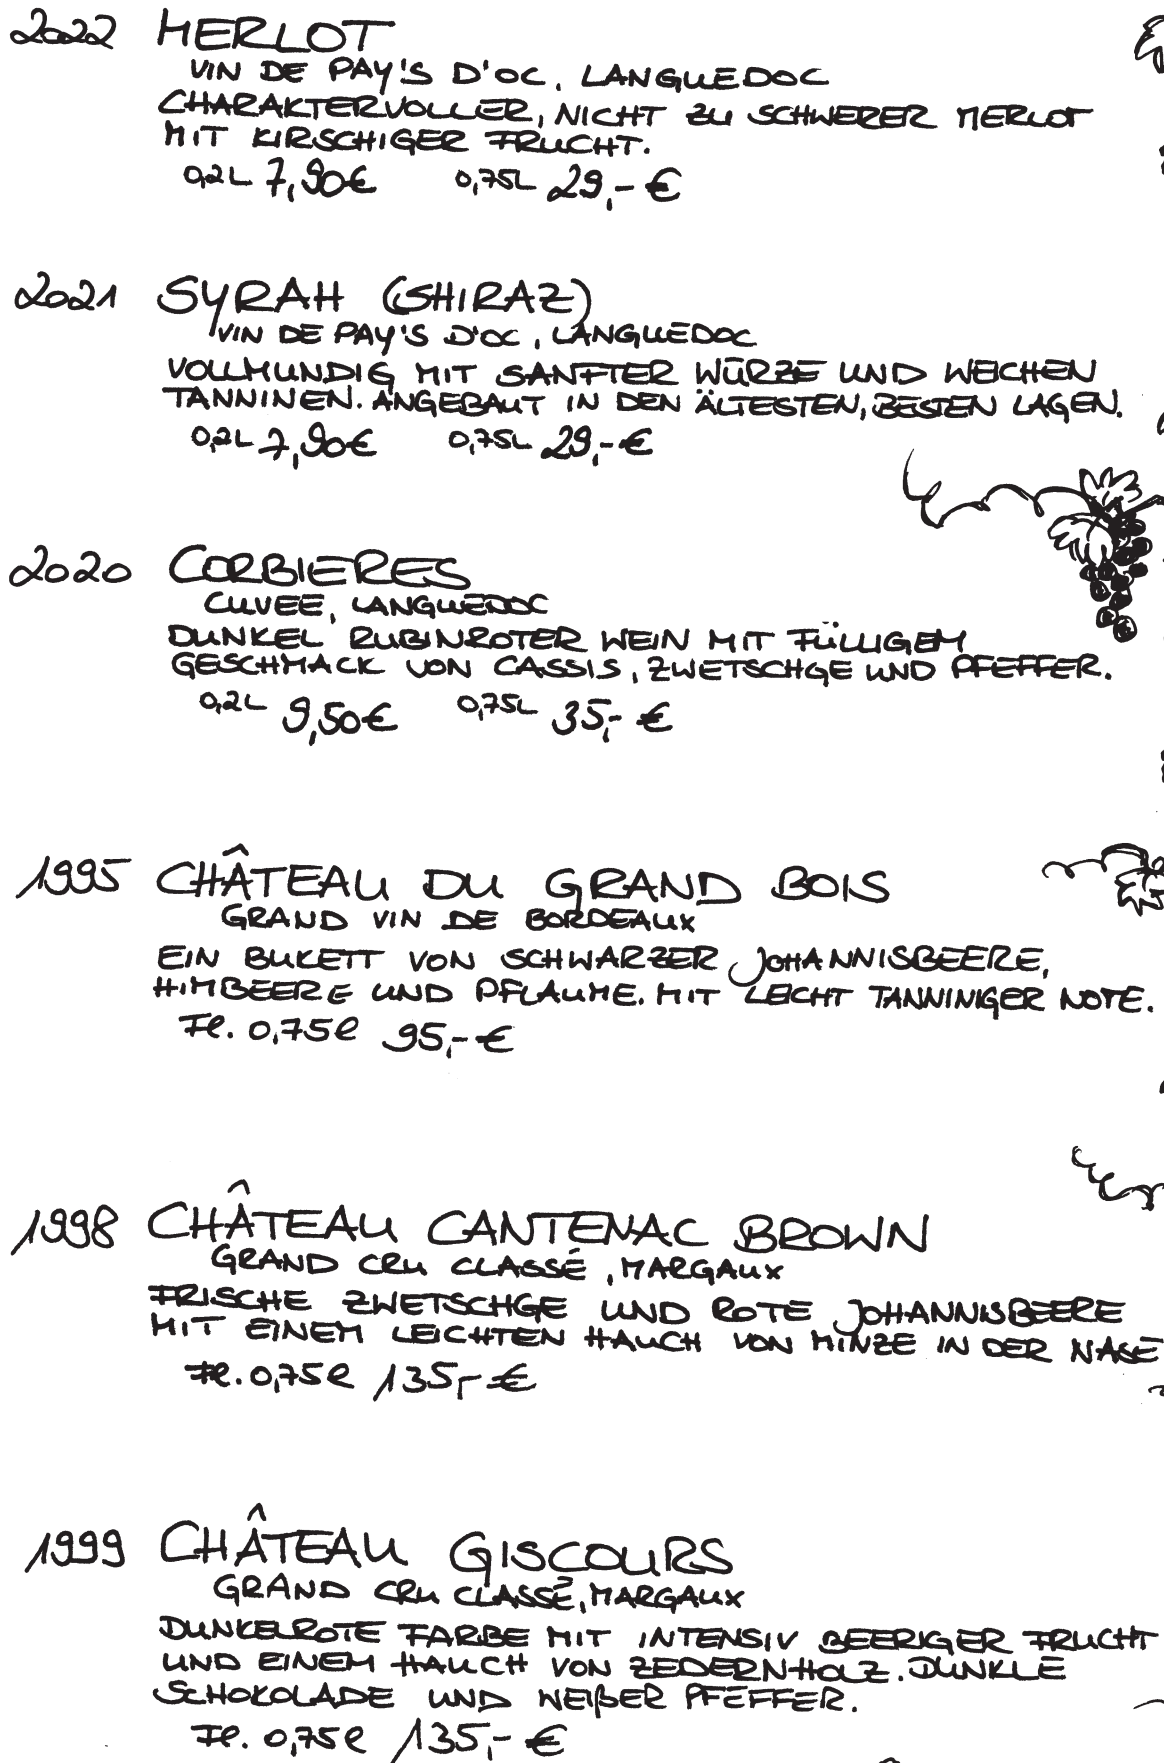 2022 MERLOT
VIN DE PAY'S D'OC, LANGUEDOC
CHARAKTERVOLLER, NICHT ZU SCHWERER MERLOT
MIT KIRSCHIGER FRUCHT.
0,2L 7,90€ 0,75L 29,- €
2021 SYRAH (SHIRAZ)
VIN DE PAY'S D'OC, LANGUEDOC
VOLLMUNDIG MIT SANFTER WÜRZE UND WEICHEN
TANNINEN. ANGEBAUT IN DEN ÄLTESTEN, BESTEN LAGEN.
0,2L 7,90€ 0,75L 29,- €
2020 CORBIERES
CUVEE, LANGUEDOC
DUNKEL RUBINROTER WEIN MIT FÜLLIGEM
GESCHMACK VON CASSIS, ZWETSCHGE UND PFEFFER.
0,2L 9,50€ 0,75L 35,- €
1995 CHÂTEAU DU GRAND BOIS
GRAND VIN DE BORDEAUX
EIN BUKETT VON SCHWARZER JOHANNISBEERE,
HIMBEERE UND PFLAUME. MIT LEICHT TANNINIGER NOTE.
Fl. 0,75l 95,- €
1998 CHÂTEAU CANTENAC BROWN
GRAND CRU CLASSÉ, MARGAUX
FRISCHE ZWETSCHGE UND ROTE JOHANNISBEERE
MIT EINEM LEICHTEN HAUCH VON MINZE IN DER NASE
Fl. 0,75l 135,- €
1999 CHÂTEAU GISCOURS
GRAND CRU CLASSÉ, MARGAUX
DUNKELROTE FARBE MIT INTENSIV BEERIGER FRUCHT
UND EINEM HAUCH VON ZEDERNHOLZ. DUNKLE
SCHOKOLADE UND WEIßER PFEFFER.
Fl. 0,75l 135,- €